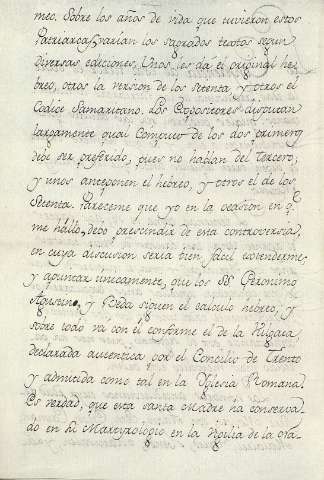 meo. Sobre los años de vida que tuvieron estos
Patriarcas, varían los sagrados textos segun
diversas ediciones. Unos les da el original he-
breo, otros la version de los setenta y otros el
Codice Samaritano. Los Expositores disputan
largamente qual Computo de los dos primeros
debe ser preferido, pues no hablan del tercero;
y unos anteponen el hebreo, y otros el de los
setenta. Pareceme que yo en la ocasion en q.e
me hallo, debo prescindir de esta controversia,
en cuya discusion seria bien facil estenderme,
y apuntar unicamente, que los SS. Geronimo
Agustino, y Beda siguen el calculo hebreo, y
sobre todo va con el conforme el de la Vulgata,
declarada autentica por el Concilio de Trento
y admitida como tal en la Yglesia Romana.
Es verdad, que esta santa Madre ha conserva-
do en su Martyrologio en la Vigilia de la Na-